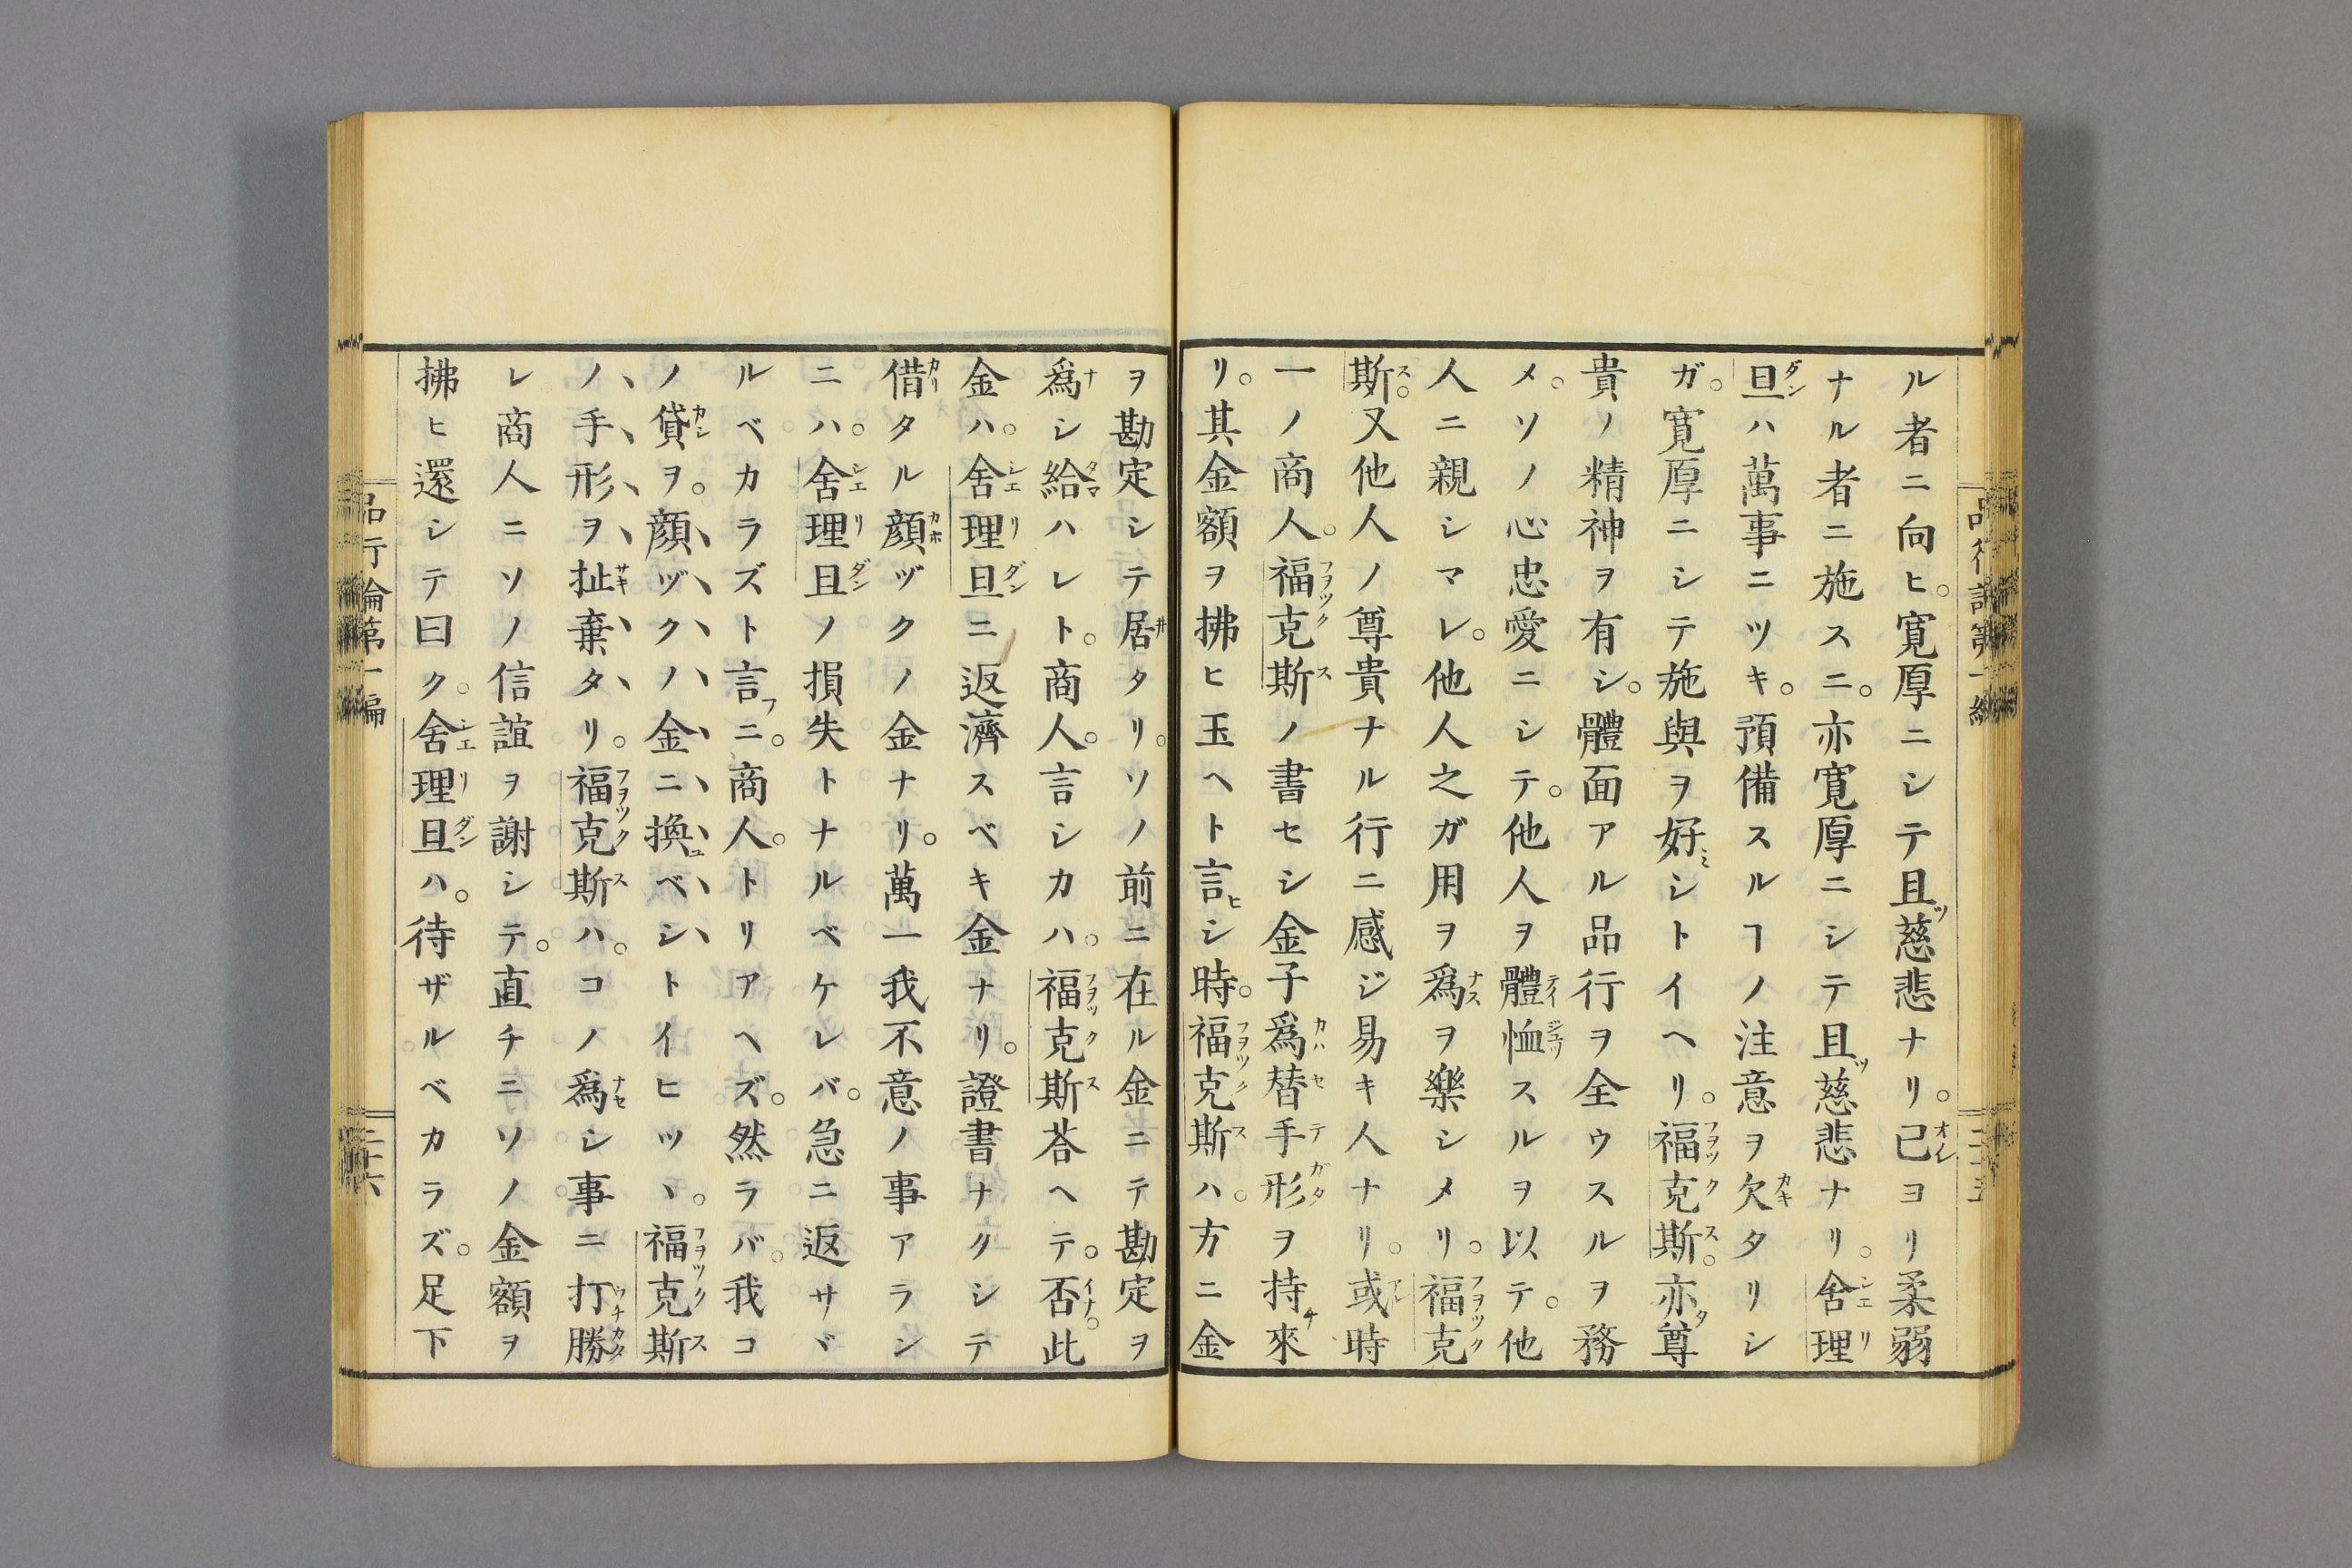 ル者ニ向ヒ。寛厚ニシテ且ツ慈悲ナリ。已ヨリ柔弱
ナル者ニ施スニ。亦寛厚ニシテ且ツ慈悲ナリ。舍理
旦ハ萬事ニツキ。預備スルヿノ注意ヲ欠タリシ
ガ。寛厚ニシテ施與ヲ好ミシトイヘリ。福克斯。亦タ尊
貴ノ精神ヲ有シ。體面アル品行ヲ全ウスルヲ務
メ。ソノ心忠愛ニシテ。他人ヲ體恤スルヲ以テ。他
人ニ親シマレ。他人之ガ用ヲ爲ヲ樂シメリ。福克
斯。又他人ノ尊貴ナル行ニ感ジ易キ人ナリ。或時
一ノ商人。福克斯ノ書セシ金子爲替手形ヲ持チ來
リ。其金額ヲ拂ヒ玉ヘト言ヒシ時。福克斯ハ。方ニ金
ヲ勘定シテ居タリ。ソノ前ニ在ル金ニテ勘定ヲ
爲シ給ハレト。商人。言シカハ。福克斯荅ヘテ。否。此
金ハ。舍理旦ニ返濟スベキ金ナリ。證書ナクシテ
借タル顔ヅクノ金ナリ。萬一我不意ノ事アラン
ニハ。舍理旦ノ損失トナルベケレバ。急ニ返サヾ
ルベカラズト言フニ。商人。トリアヘズ。然ラバ。我コ
ノ貸ヲ。顔ヅクノ金ニ換ユベシトイヒツヽ。福克斯
ノ手形ヲ扯棄タリ。福克斯ハ。コノ爲シ事ニ打勝
レ商人ニソノ信誼ヲ謝シテ。直チニソノ金額ヲ
拂ヒ還シテ曰ク。舍理旦ハ。待ザルベカラズ。足下
品行論第一編
二十六